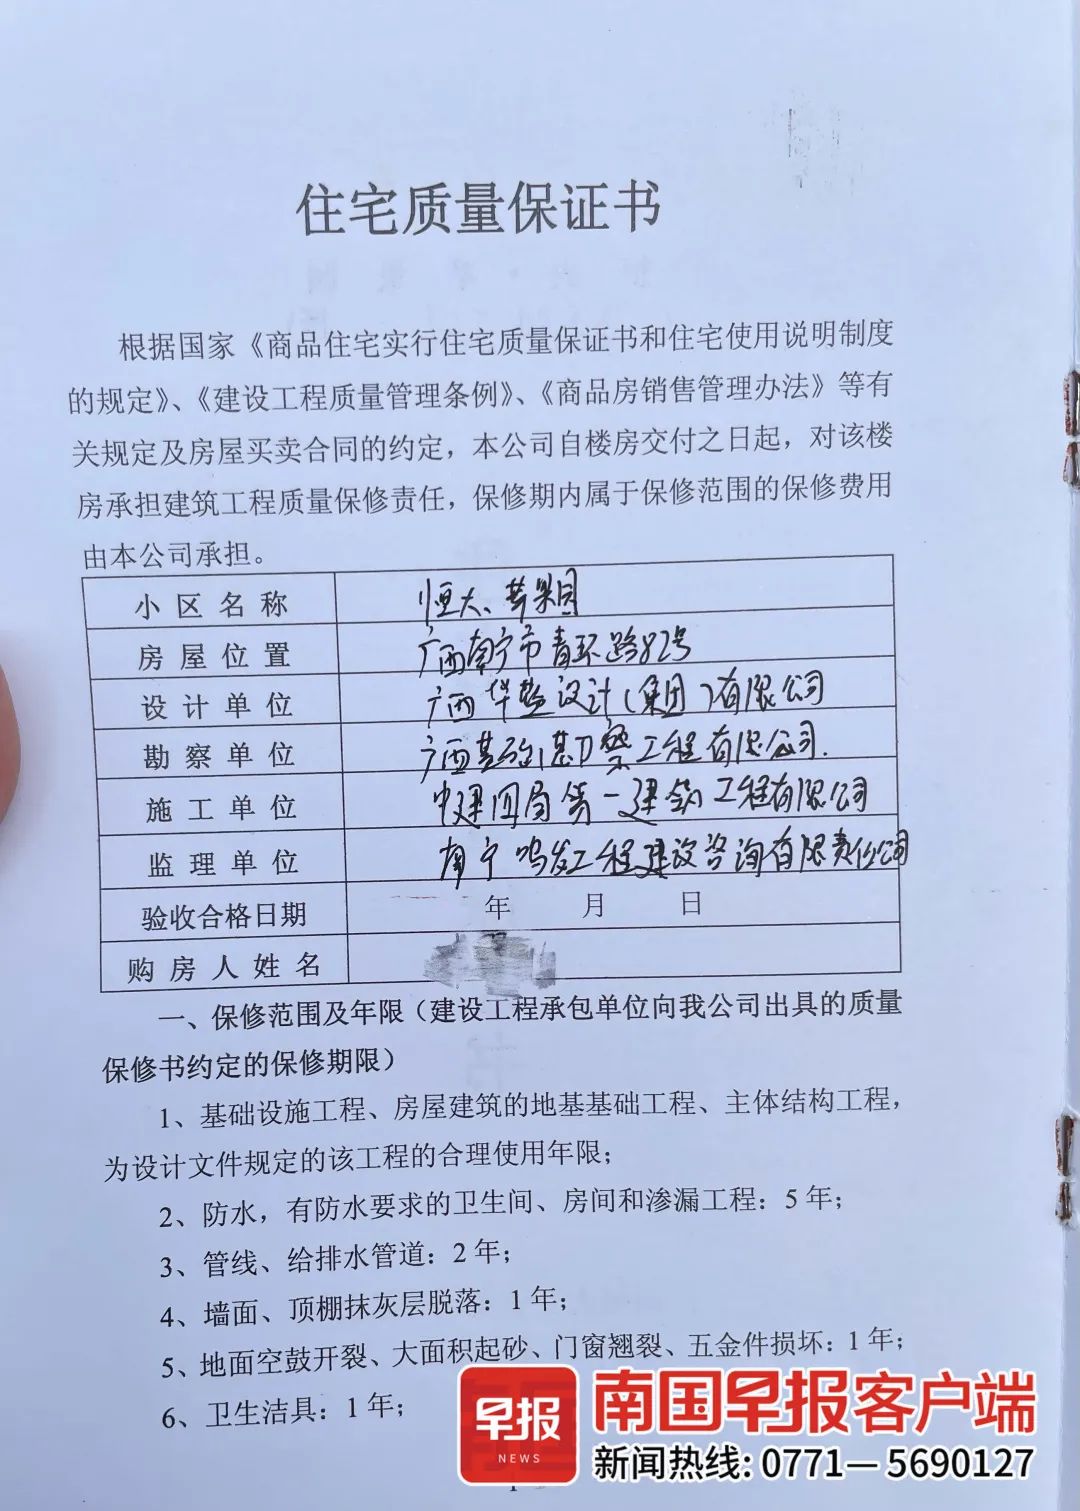 住宅质量保证书
根据国家《商品住宅实行住宅质量保证书和住宅使用说明制度
的规定》、《建设工程质量管理条例》、《商品房销售管理办法》等有
关规定及房屋买卖合同的约定，本公司自楼房交付之日起，对该楼
房承担建筑工程质量保修责任，保修期内属于保修范围的保修费用
由本公司承担。
小区名称 恒大、苹果园
房屋位置 广西南宁市青环路82号
设计单位 广西华蓝设计（集团）有限公司
勘察单位 广西基础勘察工程有限公司.
施工单位 中建四局第一建筑工程有限公司
监理单位 南宁鸣发工程建设咨询有限责任公司
验收合格日期 年 月 日
购房人姓名
一、保修范围及年限（建设工程承包单位向我公司出具的质量
保修书约定的保修期限）
1、基础设施工程、房屋建筑的地基基础工程、主体结构工程，
为设计文件规定的该工程的合理使用年限；
2、防水，有防水要求的卫生间、房间和渗漏工程：5 年；
3、管线、给排水管道：2 年；
4、墙面、顶棚抹灰层脱落：1 年；
5、地面空鼓开裂、大面积起砂、门窗翘裂、五金件损坏：1 年；
6、卫生洁具：1 年；
早报
NEWS
南国早报客户端
新闻热线：0771—5690127